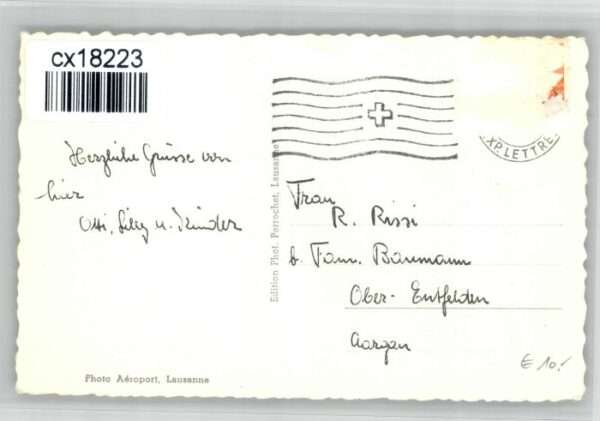 cx18223
Herzliche Grüsse von
hier
Otti, Silvy u. Kinder
Edition Phot. Perrochet, Lausanne
Photo Aéroport, Lausanne
XP. LETTRE
Frau
R. Rissi
b. Fam. Baumann
Ober-Entfelden
Aargau
€ 10.-